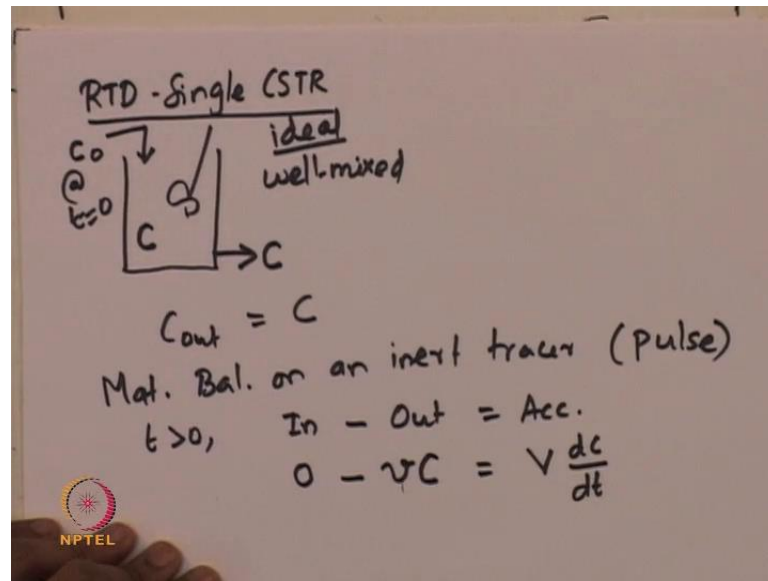 RTD - Single CSTR
ideal
well-mixed
C0
@
t=0
C
C
Cout = C
Mat. Bal. on an inert tracer (pulse)
t >0, In - Out = Acc.
0 - vC = V dc/dt
NPTEL